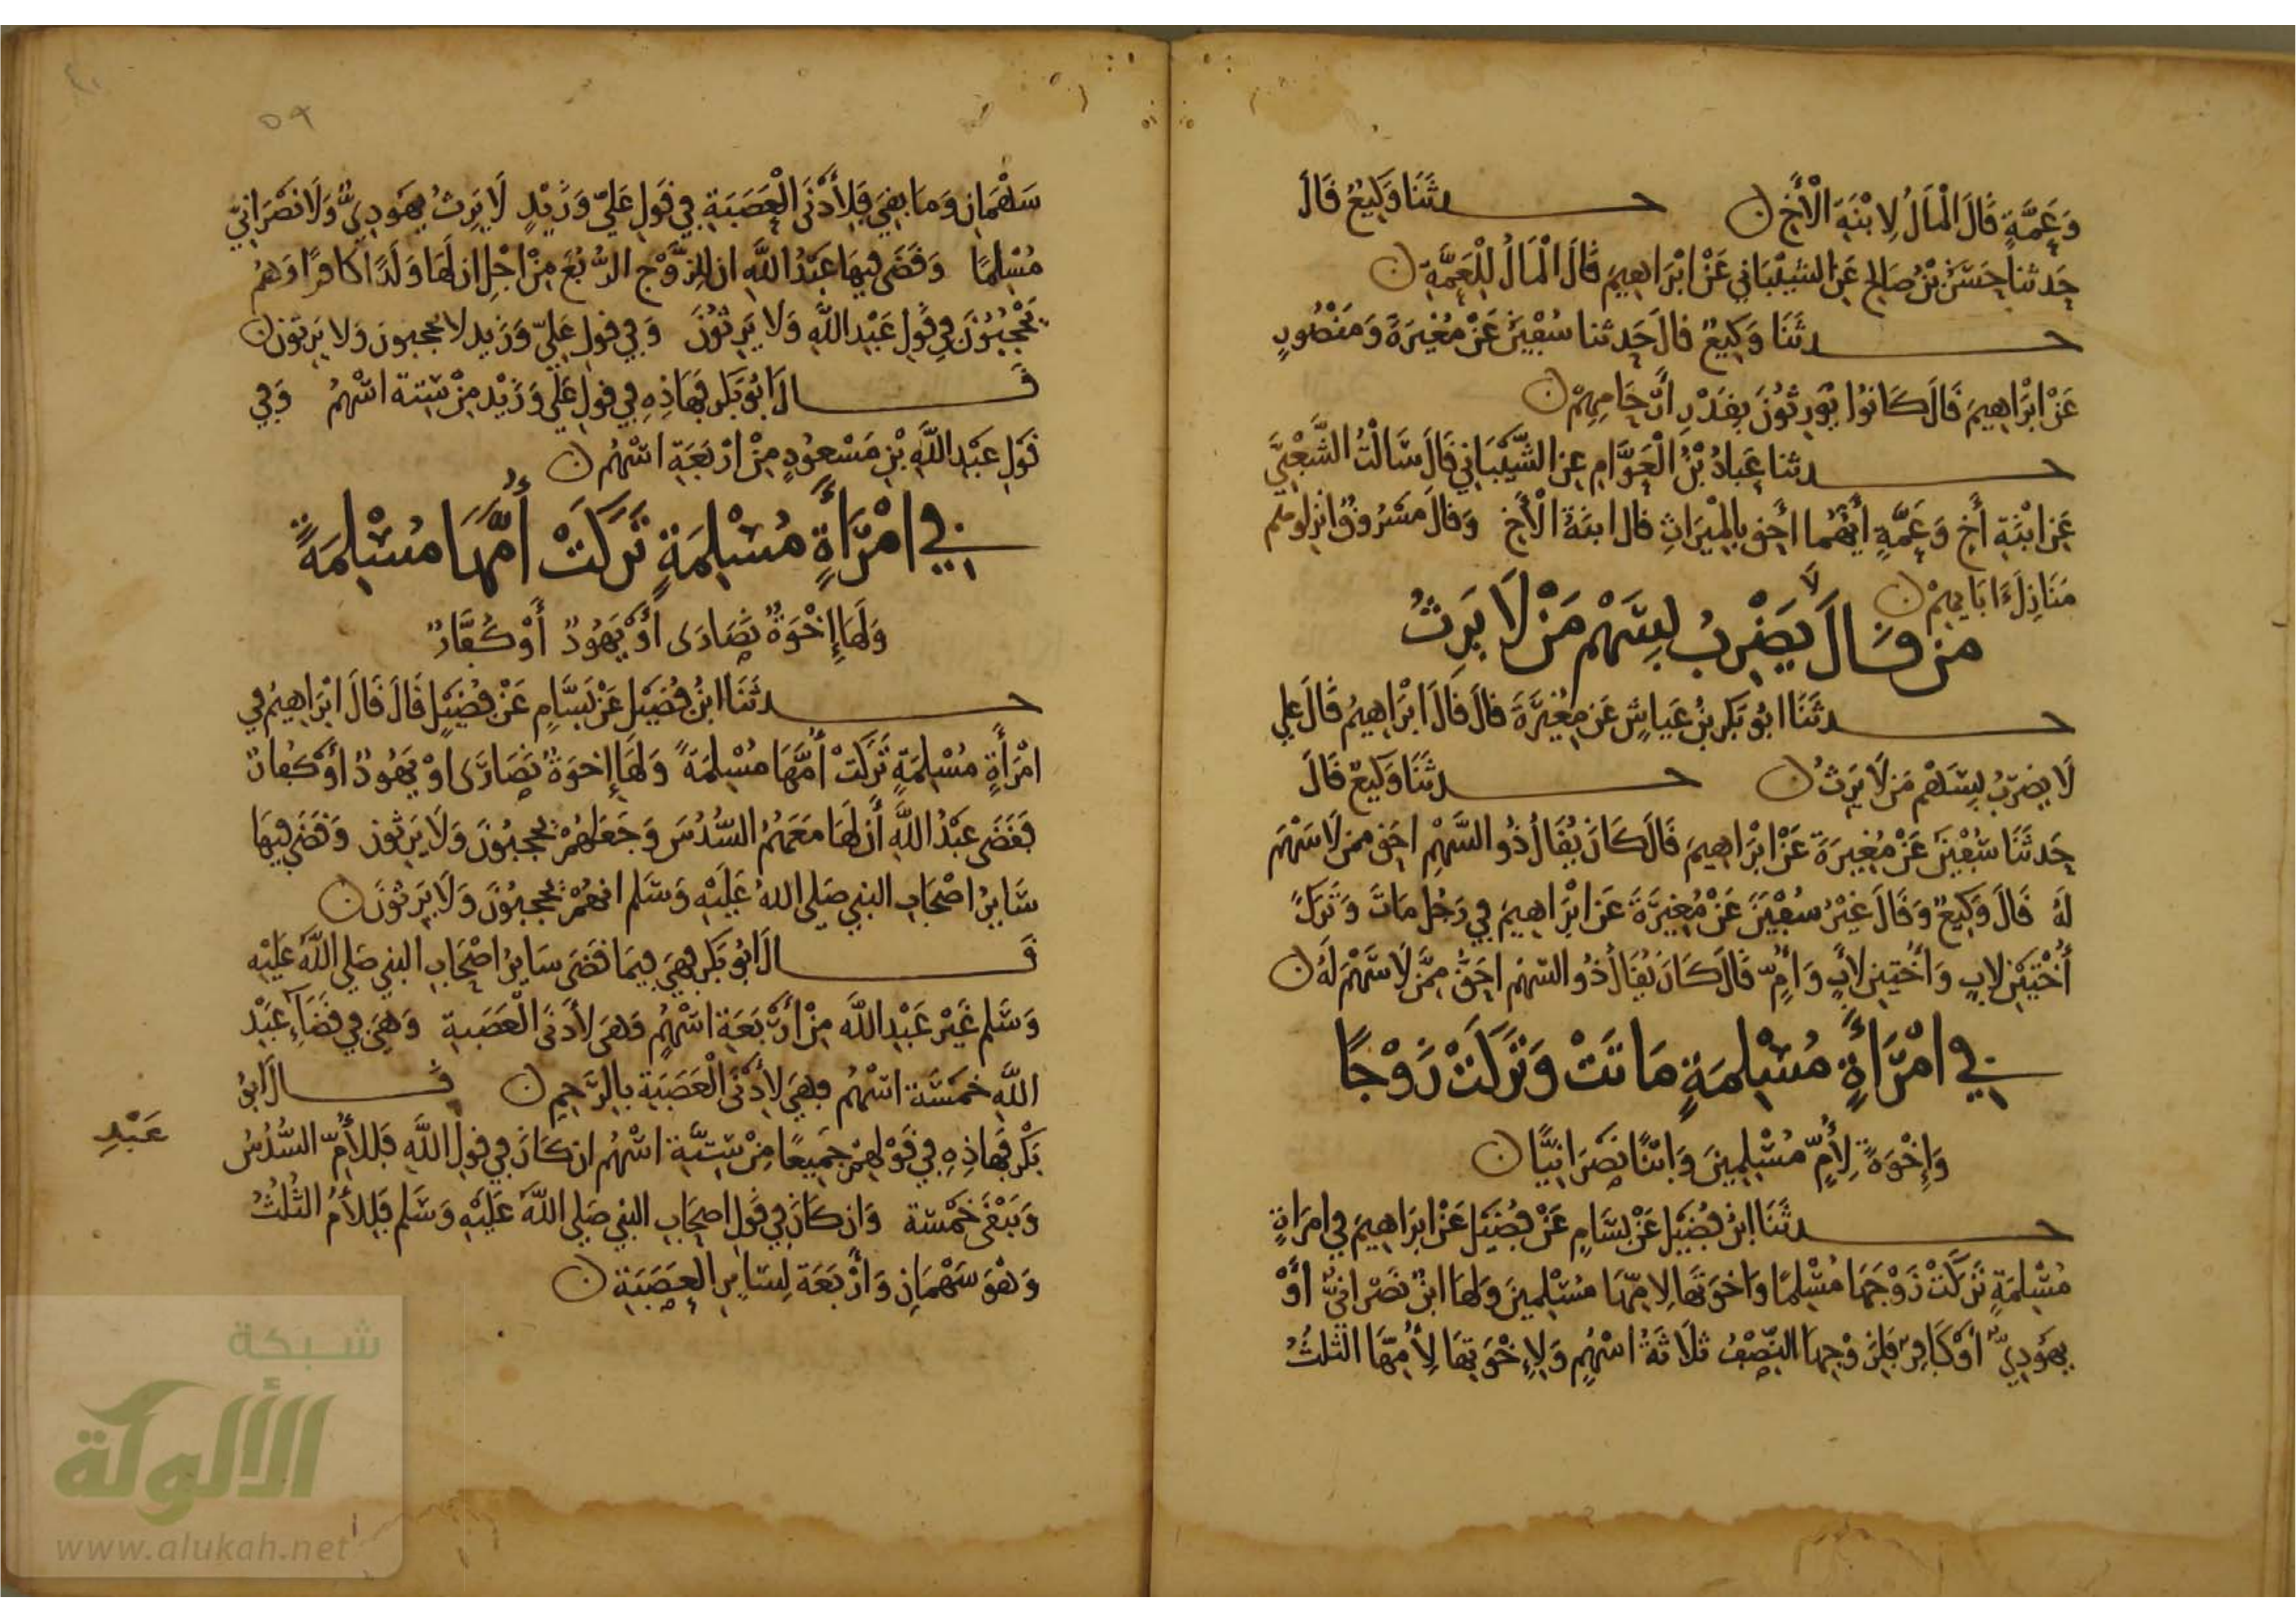 وَعَمَّةٍ قَالَ الْمَالُ لِابْنَةِ الْأَخِ ن حدثَنَا وَكِيعٌ قَالَ
حَدثنا حَسَنُ بْنُ صَالِحٍ عَنِ الشَيْبَانِي عَنْ ابْرَاهِيمَ قَالَ الْمَالُ لِلْعَمَّةِ ن
حدثَنَا وَكِيعٌ قالَ حَدثنا سُفْيَنُ عَنْ مُغِيرَةَ وَمَنْصُورٍ
عَنْ ابْرَاهِيمَ قَالَ كَانُوا يُوَرِثُونَ بِقَدْرِ أَرْحَامِهِمْ ن
حدثنا عَبادُ بْنُ الْعَوَّامِ عنِ الشَّيْبَانِي قَالَ سَالْتُ الشَّعْبِيَّ
عَنِ ابْنَةِ أَخٍ وَعَمَّةٍ أَيُّهُمَا احَق بالْمِيْرَاثِ قال ابنَةُ الْأَخِ وَقالَ مَسْرُوقٌ انزِلوهم
مَنَازِلَ ءَابَايِهِمْ ن
من قَالَ لَا يَضْرِبُ بِسَهْمٍ مَنْ لَا يَرِثُ
حدثَنَا ابُو بَكر بنُ عَياشٍ عَن مُغِيْرَةَ قالَ قَالَ ابْرَاهِيمُ قَالَ علي
لَا يضرِبُ بِسَهْمٍ مَن لَا يَرِثُ ن حدثَنَا وَكِيعٌ قَالَ
حَدثَنَا سُفْيَنُ عَنْ مُغِيرَةَ عَنْ ابْرَاهِيمَ قَالَ كَانَ يُقَالُ ذُو السَّهْمِ احَق ممن لَا سَهْمَ
لَهُ قالَ وَكِيعٌ وَقَالَ غَيْرُ سُفْيَنَ عَنْ مُغِيرَةَ عَن ابْرَاهِيمَ فِي رَجُلٍ مَاتَ وَتَرَكَ
أُخْتَيْنِ لابٍ وَأُخْتينِ لابٍ وَأُمٍّ قَالَ كَانَ يُقَالُ ذُو السَهْم احَقُّ مِمَّن لَا سَهْمَ لَهُ ن
فِي امْرَأَةٍ مُسْلِمَةٍ مَاتَتْ وَتَرَكَتْ زَوْجًا
وَإِخْوَةً لِأُمٍّ مُسْلِمِينَ وَابْنًا نَصْرَانِيًّا ن
حدثَنَا ابنُ فُضَيْل عَنْ بَسَّامٍ عَنْ فُضَيْل عَنْ ابرَاهِيمَ في امرَاةٍ
مُسْلِمَةٍ تَرَكَتْ زَوْجَهَا مُسْلِمًا وَاخوَتَها لامِّهَا مُسْلِمينَ وَلها ابنٌ نَصْرَانيٌّ أَوْ
يَهُودِيٌّ اوْ كَافِرٌ فَلِزَوْجِهَا النِّصْفُ ثلَاثَةُ اسْهُمٍ وَلِإِخْوَتِهَا لِأُمِّهَا الثلُثُ
٥٩
سَهْمَانِ وَمَا بقِيَ فَلِأَدْنَى الْعَصَبَةِ فِي قَولِ عَلِيّ وَزَيْدٍ لَا يَرِثُ يَهُودِيٌّ وَلَا نَصْرَانِيّ
مُسْلِمًا وَقَضَى فِيهَا عَبْدُ اللَّهِ ان لِلزَّوْجِ الرُّبُعَ مِنْ اجْلِ ان لَهَا وَلَدًا كَافرًا وَهُمْ
يَحْجُبُونَ في قَوْلِ عَبْدِ اللَّهِ وَلَا يَرِثُونَ وَفِي قولِ عَلِيّ وَزَيد لَا يحجبونَ وَلَا يَرِثونَ ن
قَالَ ابُو بَكر فَهَاذِهِ فِي قولِ عَلي وَزَيْد مِنْ ستة اسْهُمٍ وَفِي
قَولِ عَبْدِ اللَّهِ بْنِ مَسْعُودٍ مِنْ ارْبَعَةِ اسْهُمٍ ن
فِي امْرَأَةٍ مُسْلِمَةٍ تَرَكَتْ أُمَّهَا مُسْلِمَةً
وَلَهَا إِخْوَةٌ نَصَارَى أَوْ يَهُودٌ أَوْ كُفَّارٌ
حدثَنَا ابنُ فُضَيْل عَنْ بَسَّامٍ عَنْ فُضَيْلٍ قَالَ قَالَ ابْرَاهِيمُ في
امْرَأَةٍ مُسْلِمَةٍ تَرَكَتْ أُمَّهَا مُسْلِمَةً وَلَهَا إِخوَةٌ نَصَارَى اوْ يَهُودٌ أَوْ كُفارٌ
فَقَضَى عَبْدُ اللَّهِ أَن لَهَا مَعَهُمُ السُّدُسَ وَجَعَلَهُمْ يَحجبُونَ وَلَا يَرِثون وَقضَى فِيهَا
سَايِرُ اصْحَابِ النبي صَلى اللهُ عَلَيْهِ وَسَلم انهُمْ لَا يَحجبُونَ وَلَا يَرِثونَ ن
قَالَ ابُو بَكر فَهيَ فِيمَا قضَى سَايرُ اصْحَابِ النبي صَلى اللَّه عَلَيْهِ
وَسَلم غَيْر عَبْدِ اللَّه مِنْ أَرْبَعَةِ اسْهُمٍ وَهيَ لأَدنَى الْعَصَبة وَهِيَ فِي قضَاءِ عَبْدِ
اللَّهِ خَمسَة اسْهُمٍ وهيَ لِأَدْنَى الْعَصَبَةِ بِالرَّحِمِ ن قَالَ ابُو
بَكْر فَهاذِهِ فِي قَوْلِهِمْ جَمِيعًا مِنْ سِتَّةِ اسْهُم ان كَانَ فِي قول اللَّهِ فَلِلأُمِّ السُّدُسُ
عَبْدِ
وَيَبْقَى خَمْسَة وَان كَانَ فِي قَولِ اصحَابِ النبي صَلي اللَّه عَلَيْهِ وَسَلم فَلِلأُمِّ الثلُثُ
وَهْوَ سَهْمَانِ وَأَرْبَعَة لِسَايرِ الْعَصَبَةِ ن
شبكة
الألوكة
www.alukah.net